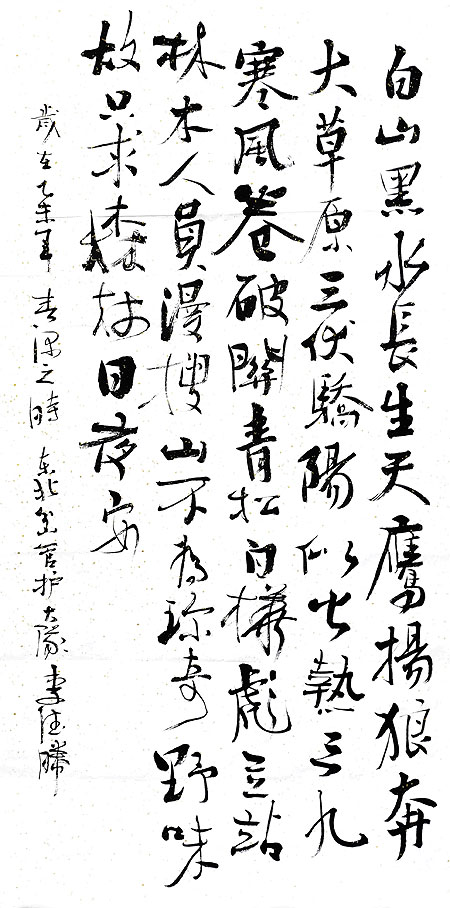 白山黑水長生天鷹揚狼奔
大草原三伏驕陽似火熱三九
寒風卷破關青松白樺彪立站
林木人員漫搜山不為珍奇野味
故只求日夜安
歲在乙未年 春深之時 东北岔管护大隊 李德勝